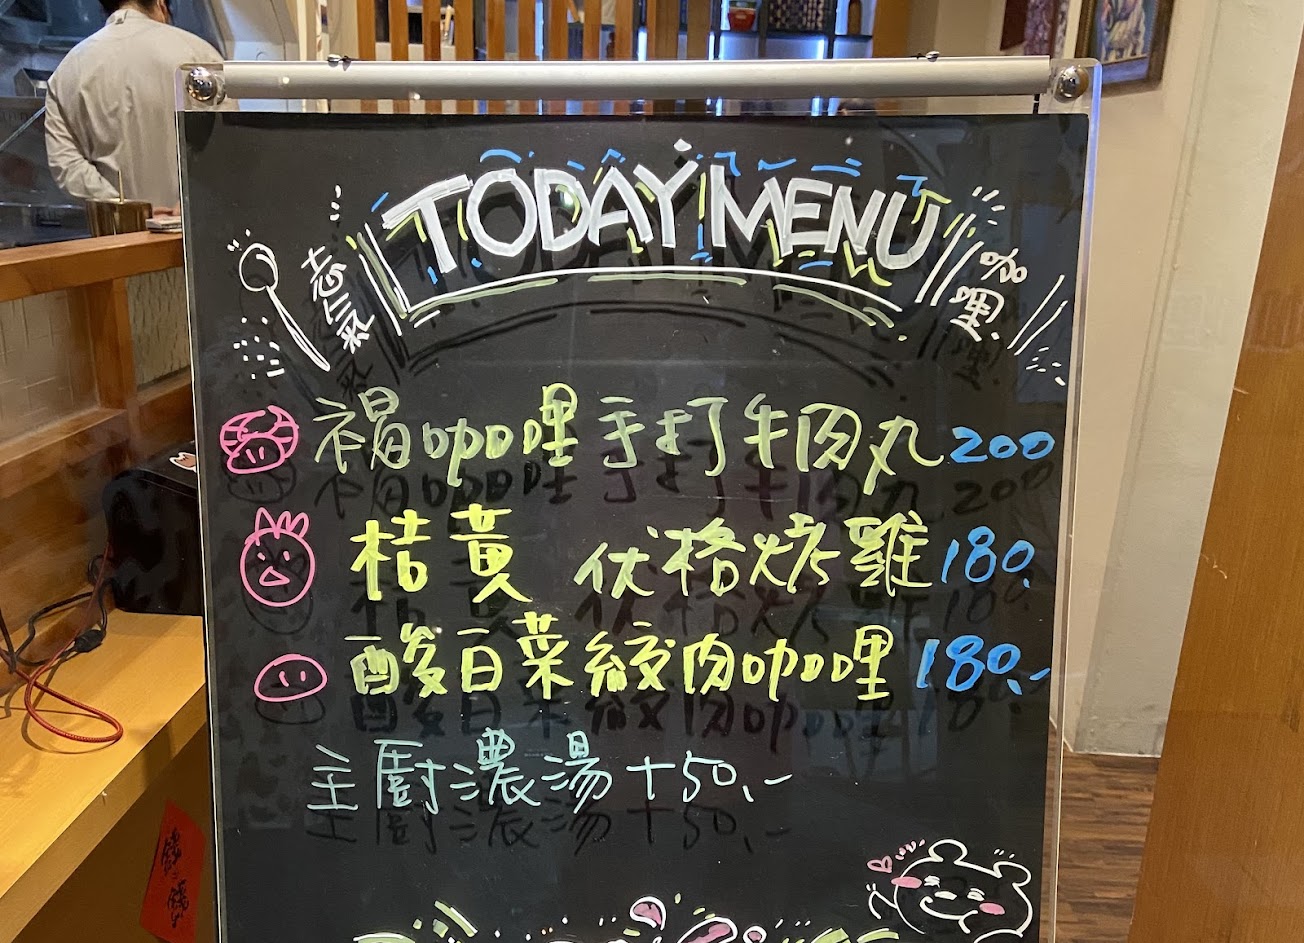 TODAY MENU
志氣
咖哩
褐咖哩手打牛肉丸 200
桔黃 優格烤雞 180.
酸白菜絞肉咖哩 180.-
主廚濃湯 +50.-